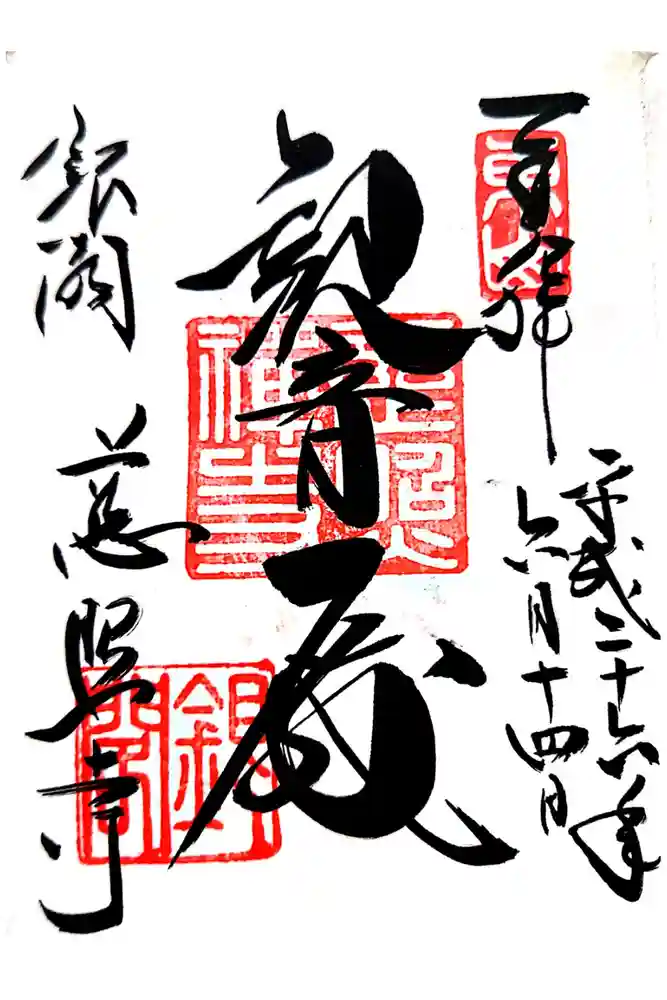 奉拝
東山
平成二十六年
六月十四日
観音殿
慈照
禪寺
銀閣 慈照寺
銀閣